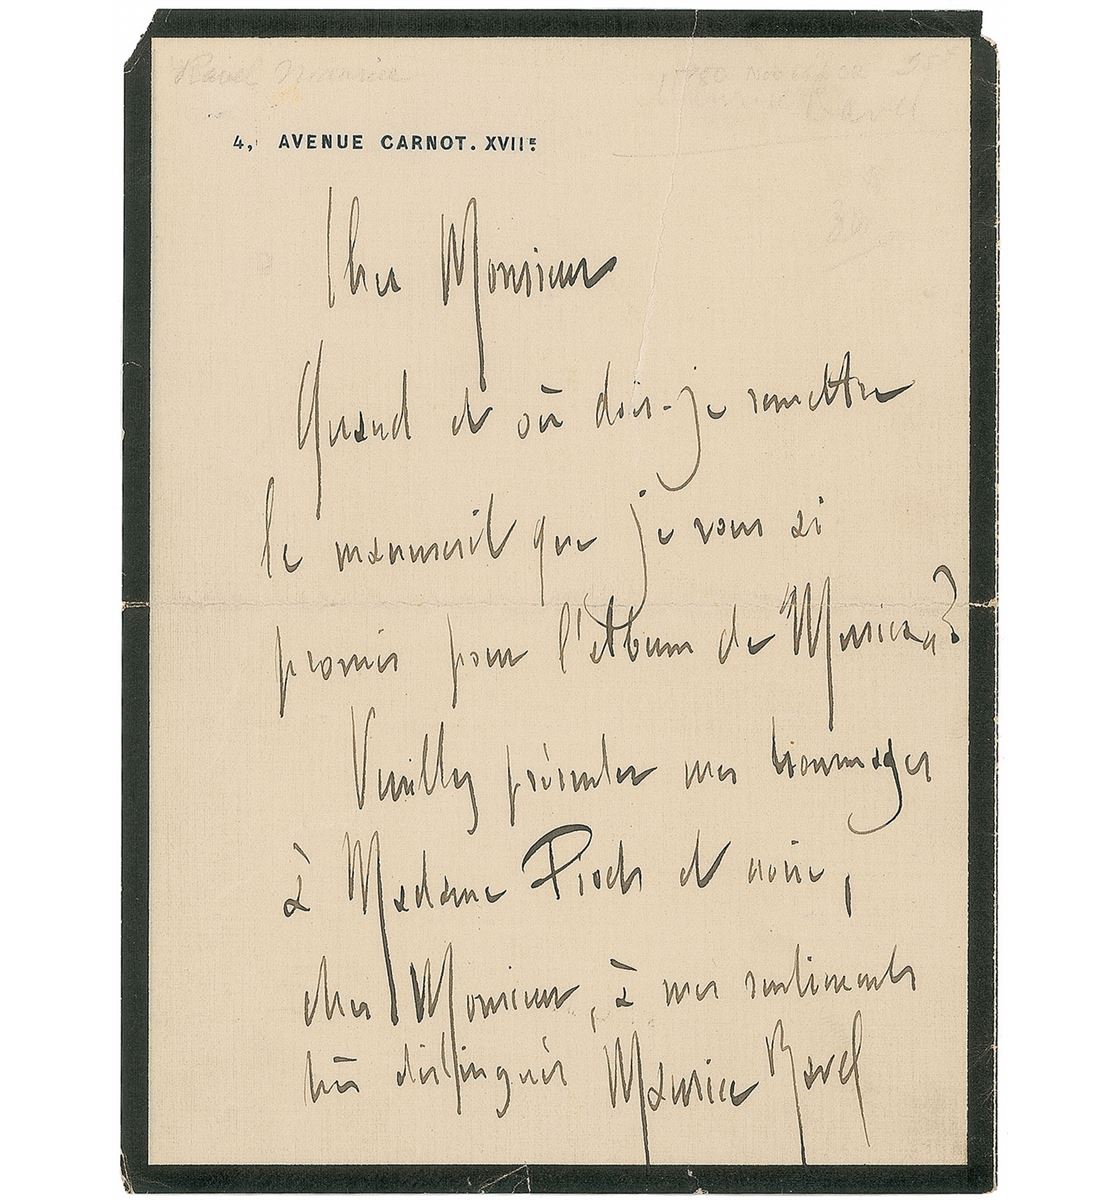 Ravel Maurice
4, AVENUE CARNOT. XVIIE
Cher Monsieur
Quand et où dois-je remettre
le manuscrit que je vous ai
promis pour l'Album de Musica?
Veuillez présenter mes hommages
à Madame Pioch et croire,
cher Monsieur, à mes sentiments
très distingués Maurice Ravel